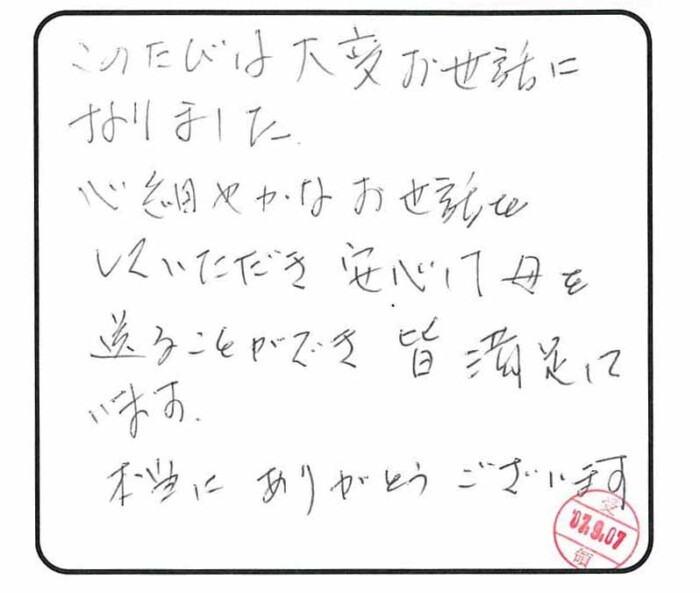 このたびは大変お世話に
なりました.
心細やかなお世話を
していただき 安心して母を
送ることができ 皆満足して
います.
本当に ありがとう ございます
受
'07.9.07
領